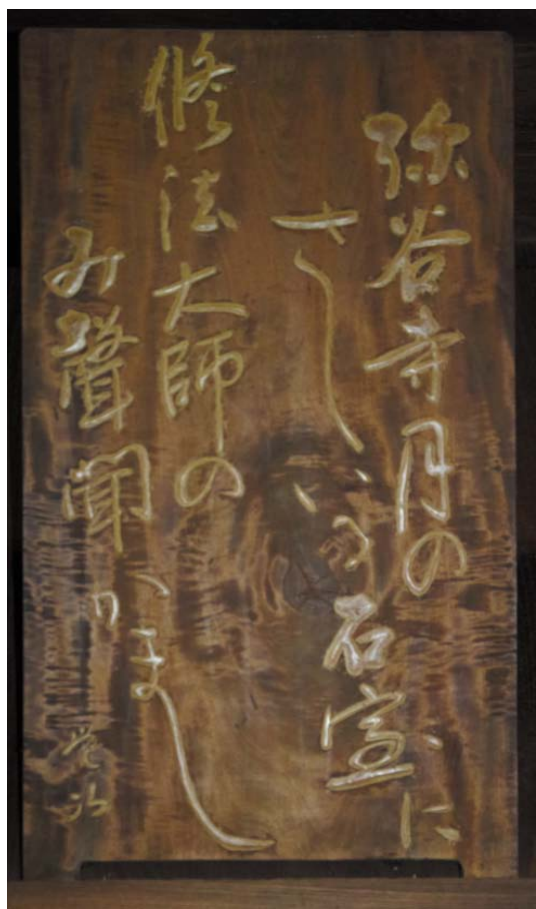 弥谷寺月の
さしいる石室に
修法大師の
み聲聞かまし